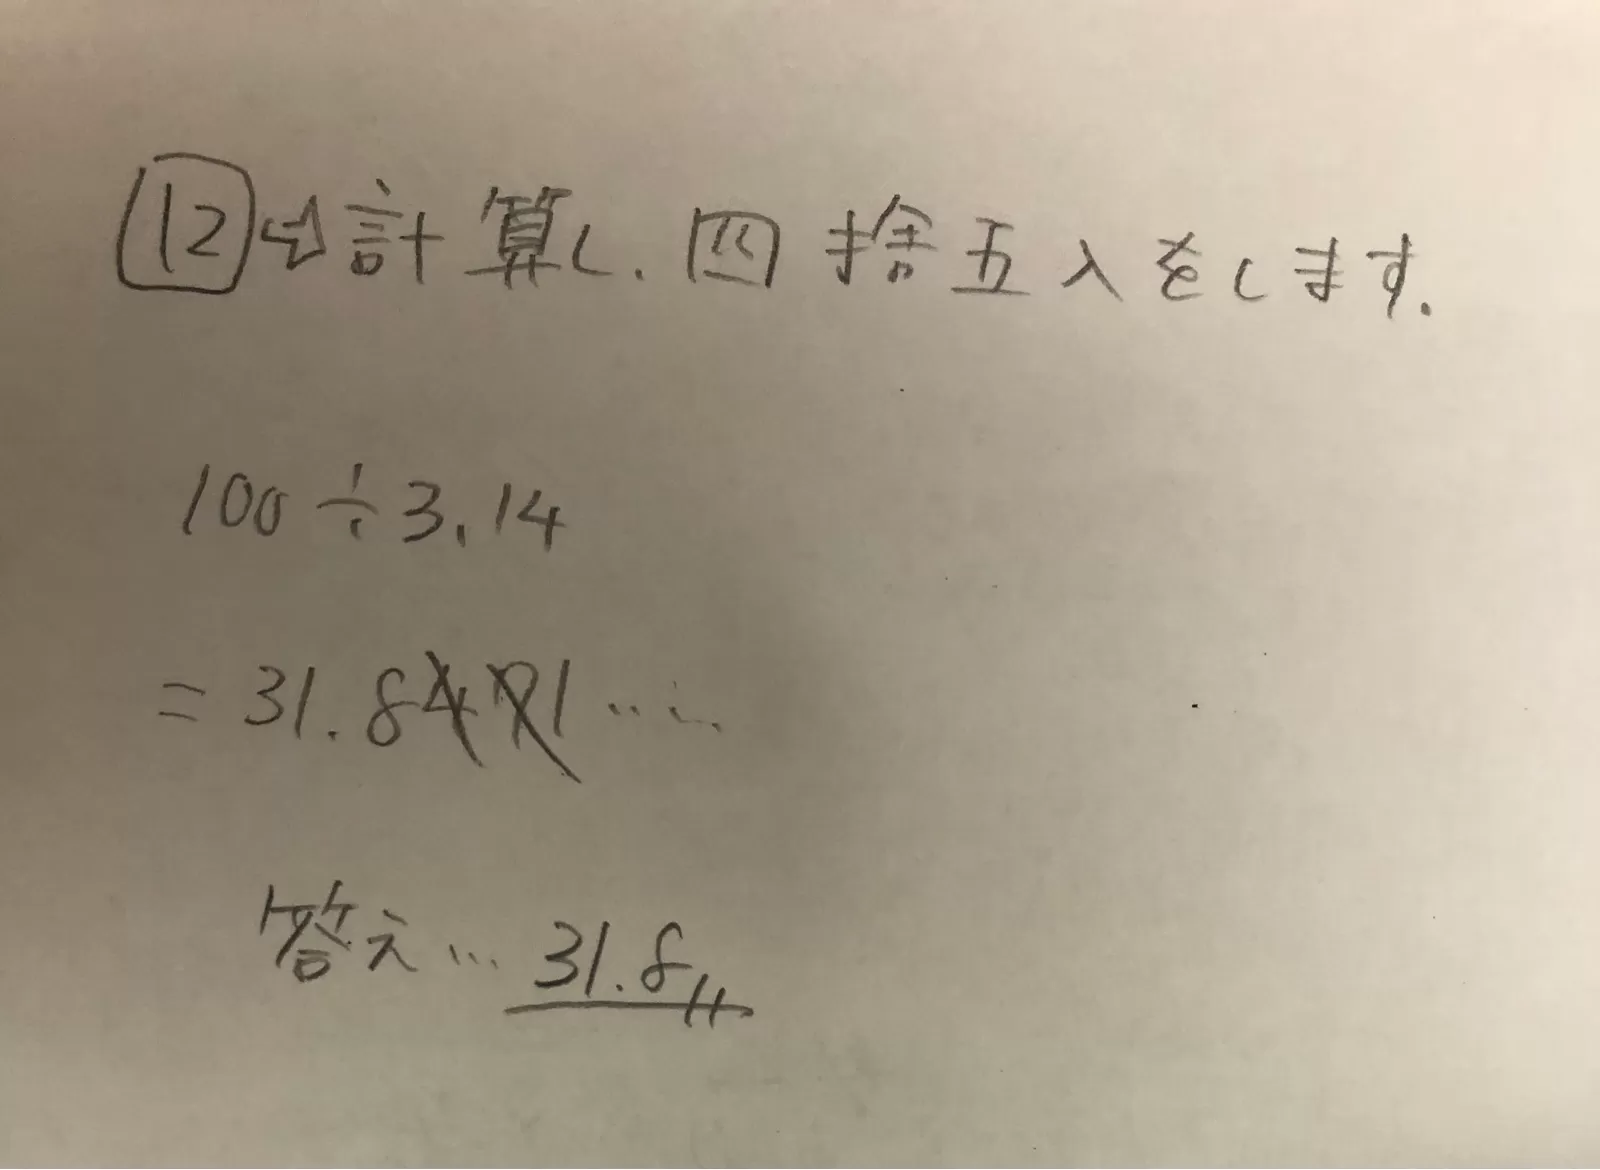 12⇨計算し、四捨五入をします。
100÷3.14
=31.8471……
答え…31.8